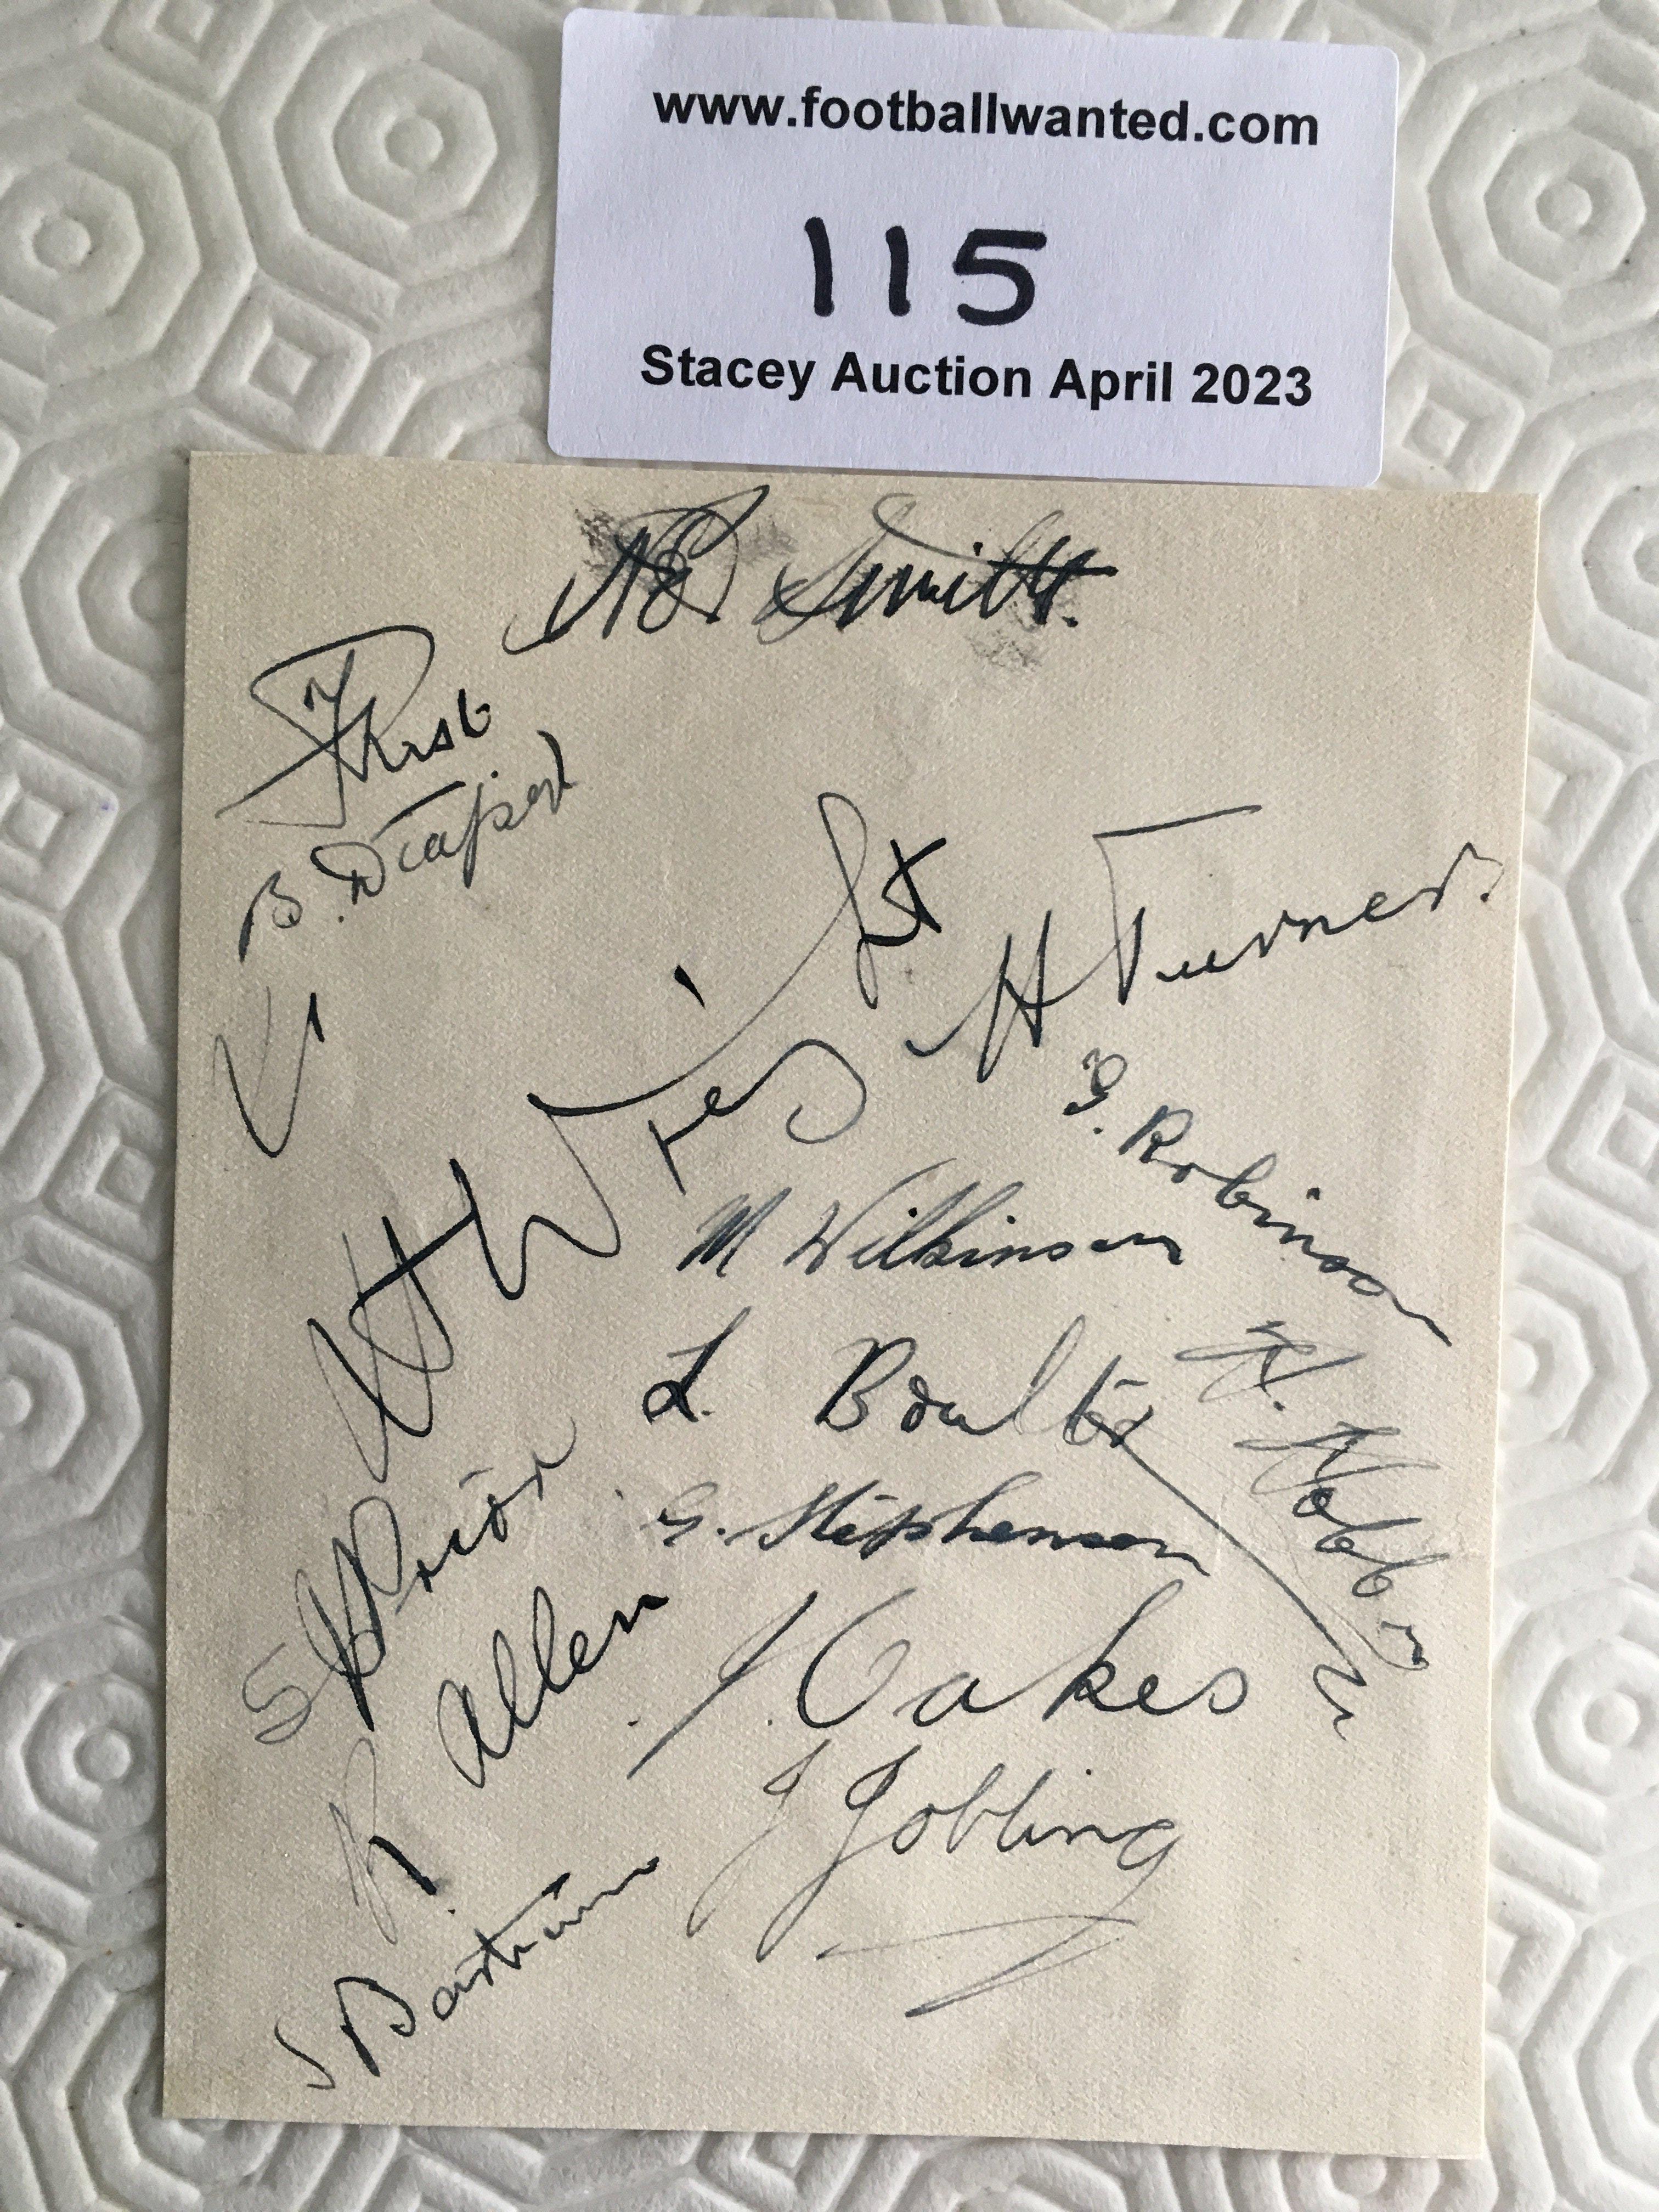 www.footballwanted.com
115
Stacey Auction April 2023
Smith.
B.
H Wright
H Turner.
G. Robinson
M Wilkinson
L. Boulter
H. Hobbis
G. Stephenson
S Prior
R. Allen
J. Oakes
J Jobling
S Bartram